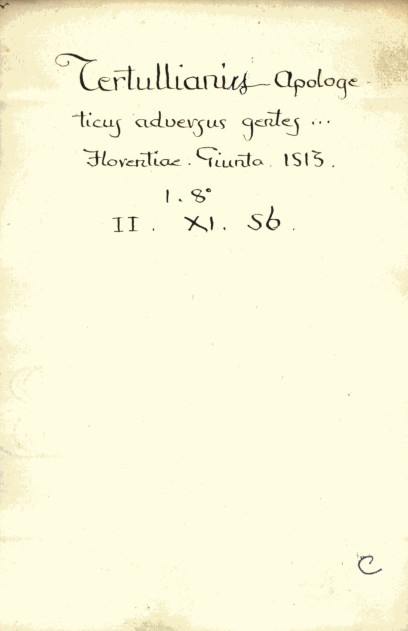 Tertullianus Apologe-
ticus adversus gentes ...
Florentiae. Giunta. 1513.
1. 8°
II. XI. 56.
C